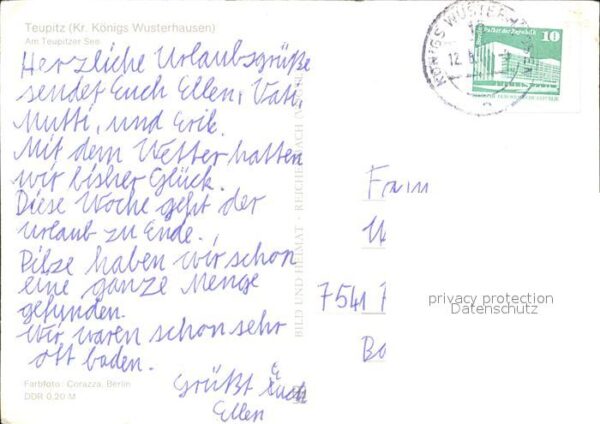 Teupitz (Kr. Königs Wusterhausen)
Am Teupitzer See
Herzliche Urlaubsgrüße
sendet Euch Ellen, Vati,
Mutti, und Erik.
Mit dem Wetter hatten
wir bisher Glück.
Diese Woche geht der
Urlaub zu Ende.
Pilze haben wir schon
eine ganze Menge
gefunden.
Wir waren schon sehr
oft baden.
Grüßt Euch
Ellen
Farbfoto: Corazza, Berlin
DDR 0,20 M
BILD UND HEIMAT · REICHENBACH
KÖNIGS WUSTERHAUSEN
12.
Palast der Republik
10
7541
privacy protection
Datenschutz